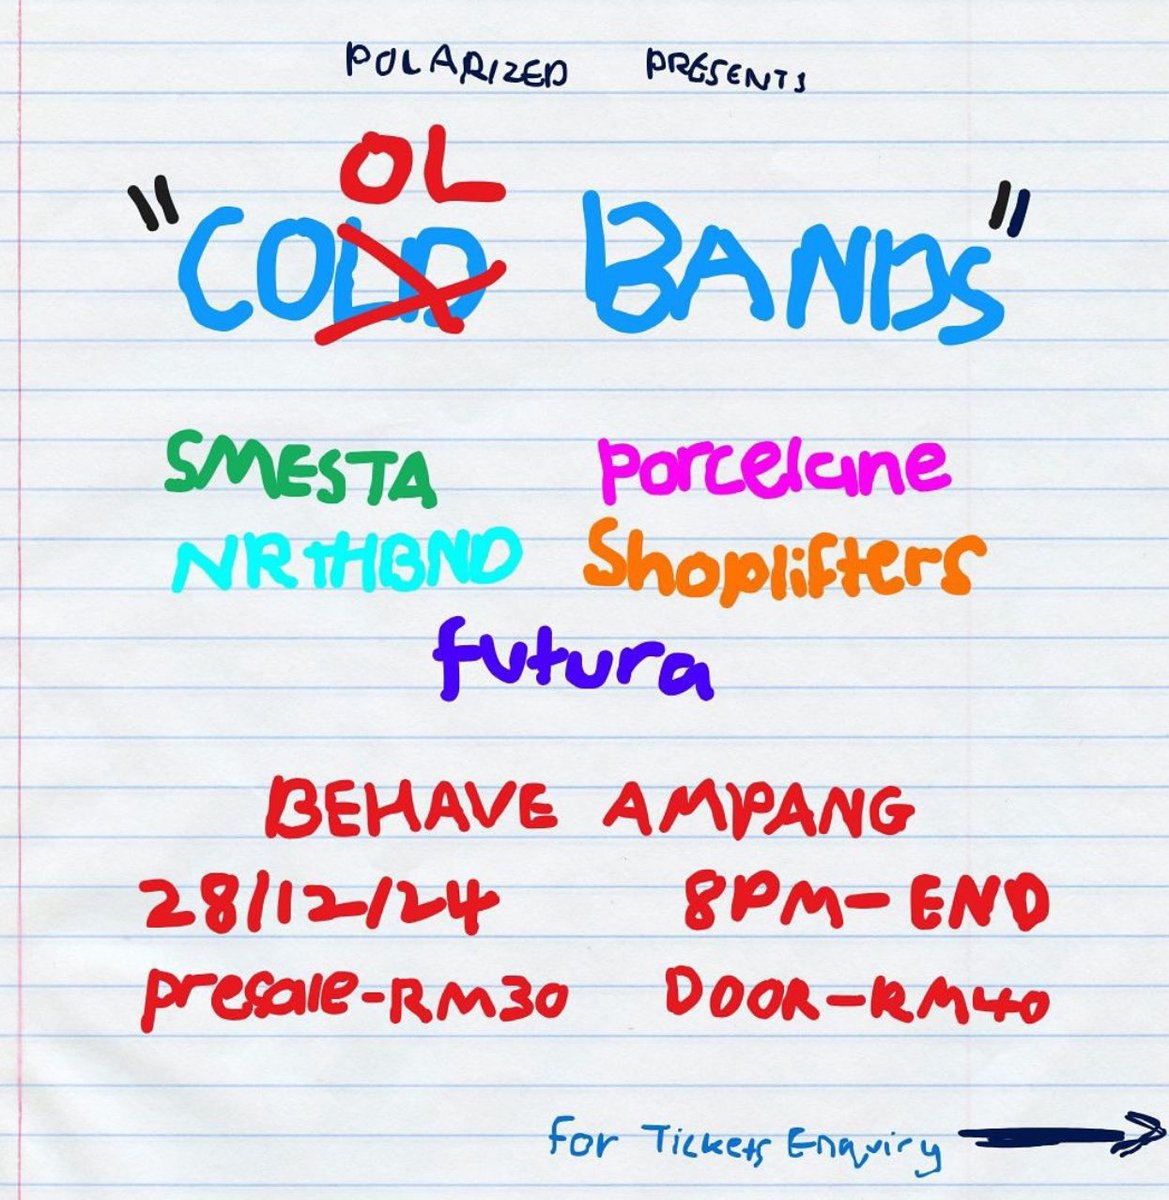 POLARIZED PRESENTS
OL
"COLD BANDS"
SMESTA porcelaine
NRTHBND Shoplifters
futura
BEHAVE AMPANG
28/12/24 8PM-END
presale-RM30 DOOR-RM40
for Tickets Enquiry